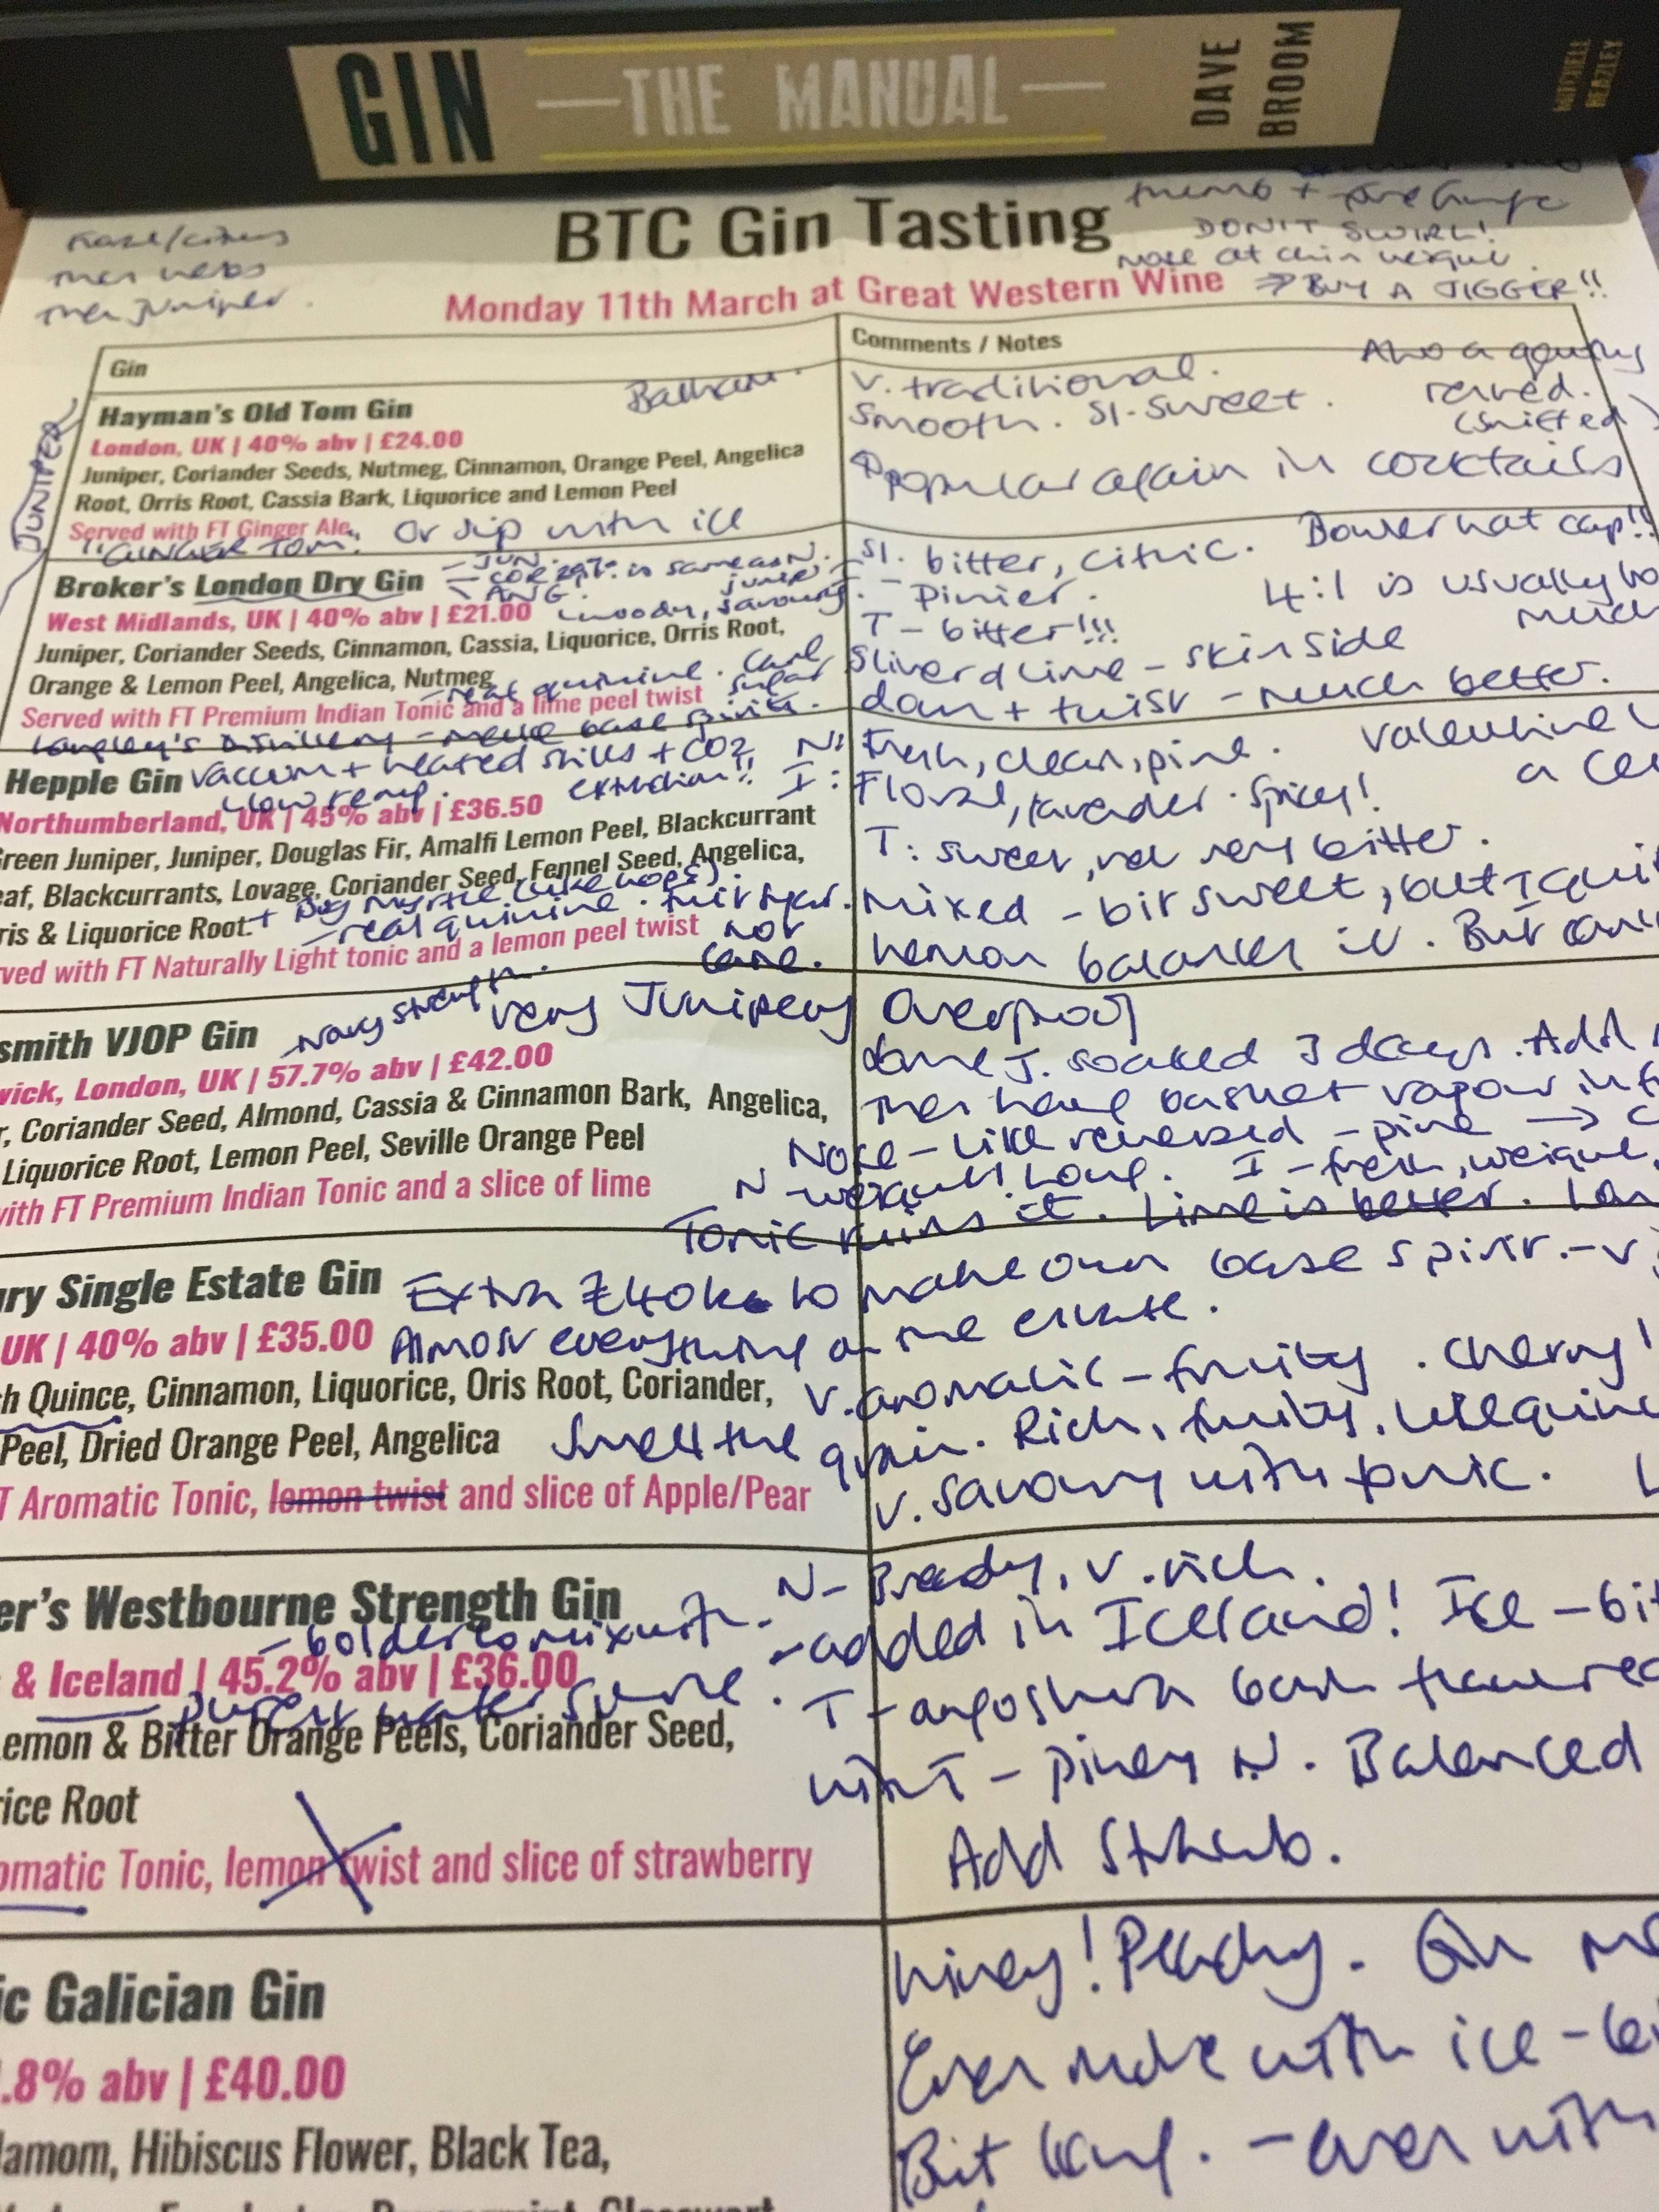 GIN — THE MANUAL — DAVE BROOM MITCHELL BEAZLEY
BTC Gin Tasting
then herbs
then juniper.
DON'T SWIRL!
nose at chin height.
Monday 11th March at Great Western Wine
→ BUY A JIGGER!!
Gin
Comments / Notes
JUNIPER
Hayman's Old Tom Gin
Balham.
London, UK | 40% abv | £24.00
Juniper, Coriander Seeds, Nutmeg, Cinnamon, Orange Peel, Angelica
Root, Orris Root, Cassia Bark, Liquorice and Lemon Peel
Served with FT Ginger Ale.
"GINGER TOM". Or sip with ice
V. traditional.
Smooth. Sl. sweet.
Also a gently
Popular again in cocktails
Broker's London Dry Gin
- JUN.
- COR
- ANG.
woody, savoury.
West Midlands, UK | 40% abv | £21.00
Juniper, Coriander Seeds, Cinnamon, Cassia, Liquorice, Orris Root,
Orange & Lemon Peel, Angelica, Nutmeg
- real quinine. Cane sugar
Served with FT Premium Indian Tonic and a lime peel twist
Langley's Distillery - make base spirits.
Sl. bitter, citric. Bowler hat cap!!
- Pinier.
4:1 is usually
much
T - bitter!!!
Sliver of lime - skin side
down + twist - much better.
Hepple Gin
Vaccum + heated stills + CO2
extraction!!
low temp.
Northumberland, UK | 45% abv | £36.50
Green Juniper, Juniper, Douglas Fir, Amalfi Lemon Peel, Blackcurrant
eaf, Blackcurrants, Lovage, Coriander Seed, Fennel Seed, Angelica,
ris & Liquorice Root.
+ Bog Myrtle (like hops).
- real quinine. fruit sugar.
not
cane.
ved with FT Naturally Light tonic and a lemon peel twist
N: Fresh, clean, pine.
I: Floral, lavender. Spicy!
T: sweet, not very bitter.
Mixed - bit sweet, but I
Lemon balances it. But
smith VJOP Gin
- Navy strength.
Very Junipery Overproof
wick, London, UK | 57.7% abv | £42.00
r, Coriander Seed, Almond, Cassia & Cinnamon Bark, Angelica,
Liquorice Root, Lemon Peel, Seville Orange Peel
with FT Premium Indian Tonic and a slice of lime
Some J. soaked 3 days. Add
then hang basket vapour
Nose - like reversed - pine →
N - weight! Long. I - fresh, weight,
Tonic ruins it. Lime is better.
ry Single Estate Gin
Extra £40k to make own base spirit. - v
UK | 40% abv | £35.00
Almost everything on the estate.
h Quince, Cinnamon, Liquorice, Oris Root, Coriander,
Peel, Dried Orange Peel, Angelica
T Aromatic Tonic, lemon twist and slice of Apple/Pear
V. aromatic - fruity. Cherry!
Smell the grain. Rich, fruity,
V. savoury with tonic.
er's Westbourne Strength Gin
- bolder to mix with.
& Iceland | 45.2% abv | £36.00
- purest water source.
emon & Bitter Orange Peels, Coriander Seed,
rice Root
omatic Tonic, lemon twist and slice of strawberry
N - Bready, v. rich.
- added in Iceland! Ice -
T - angostura bark
with T - piney N. Balanced
Add Shrub.
ic Galician Gin
.8% abv | £40.00
damom, Hibiscus Flower, Black Tea,
Winey! Peachy.
Even more with ice -
But long. - even with